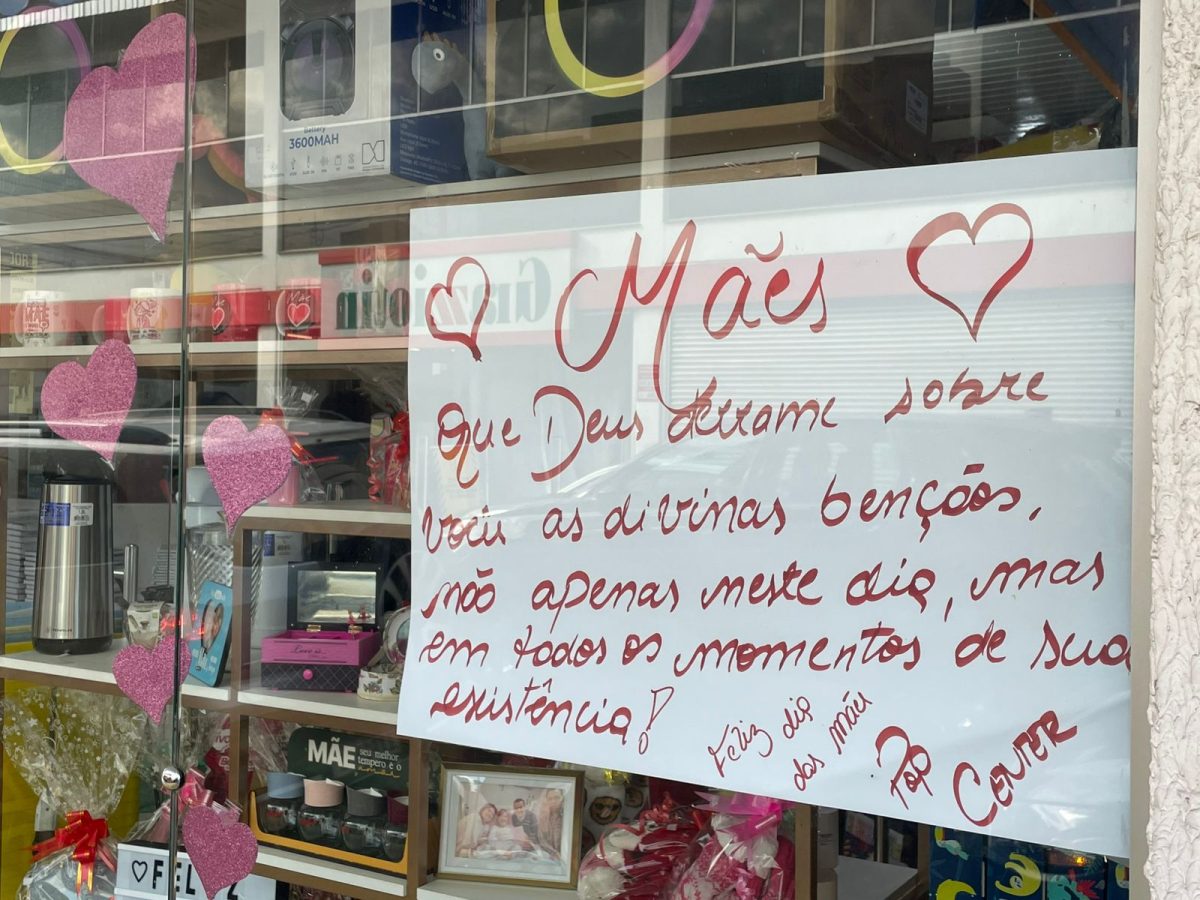 Battery
3600MAH
Mães
Que Deus derrame sobre
você as divinas bençãos,
não apenas neste dia, mas
em todos os momentos de sua
existência!
Feliz dia
das mães
Pop
CENTER
Grazziotin
MÃE seu melhor
tempero é o
♡FELIZ